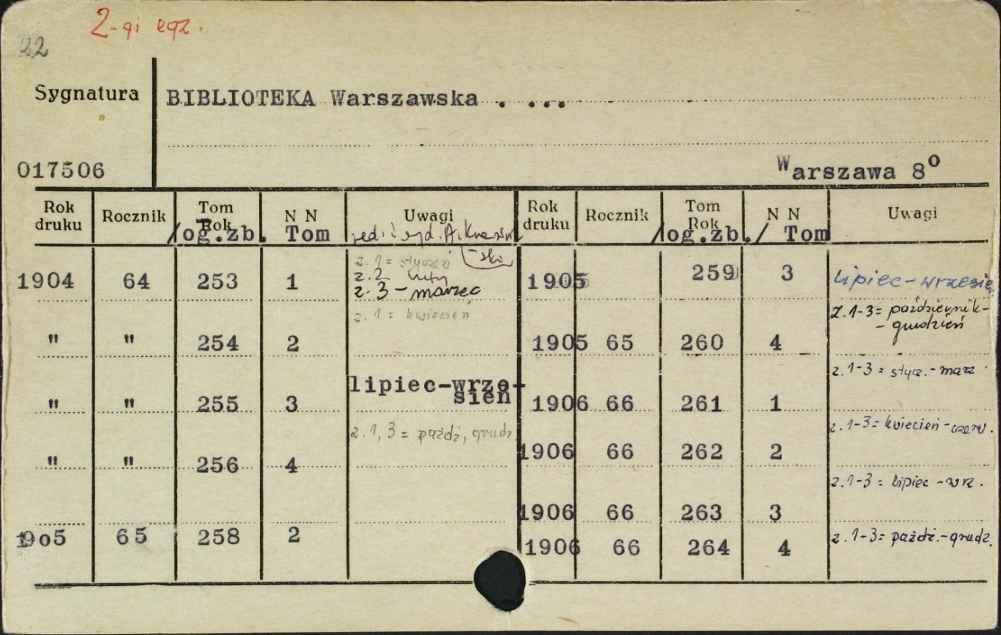 2-gi egz.
22
Sygnatura
BIBLIOTEKA Warszawska . ...
017506
Warszawa 8o
Rok druku Rocznik Tom Rok /og.zb. N N Tom Uwagi Rok druku Rocznik Tom Rok /og.zb./ N N Tom Uwagi
red. i wyd. A. Kraśniń-
-ski
1904 64 253 1 z.1 = styczeń
z.2 luty
z.3 - marzec
1905 259 3 lipiec-wrzesie
" " 254 2 z.1 = kwiecień
1905 65 260 4 z.1-3 = październik-
- grudzień
" " 255 3 lipiec-wrze-
sień
1906 66 261 1 z.1-3 = stycz.- marz
" " 256 4 z.1, 3 = paźdź, grudz
1906 66 262 2 z.1-3 = kwiecień-czerw.
1906 66 263 3 z.1-3 = lipiec-wrz.
1905 65 258 2
1906 66 264 4 z.1-3 = paźdz.-grudz.